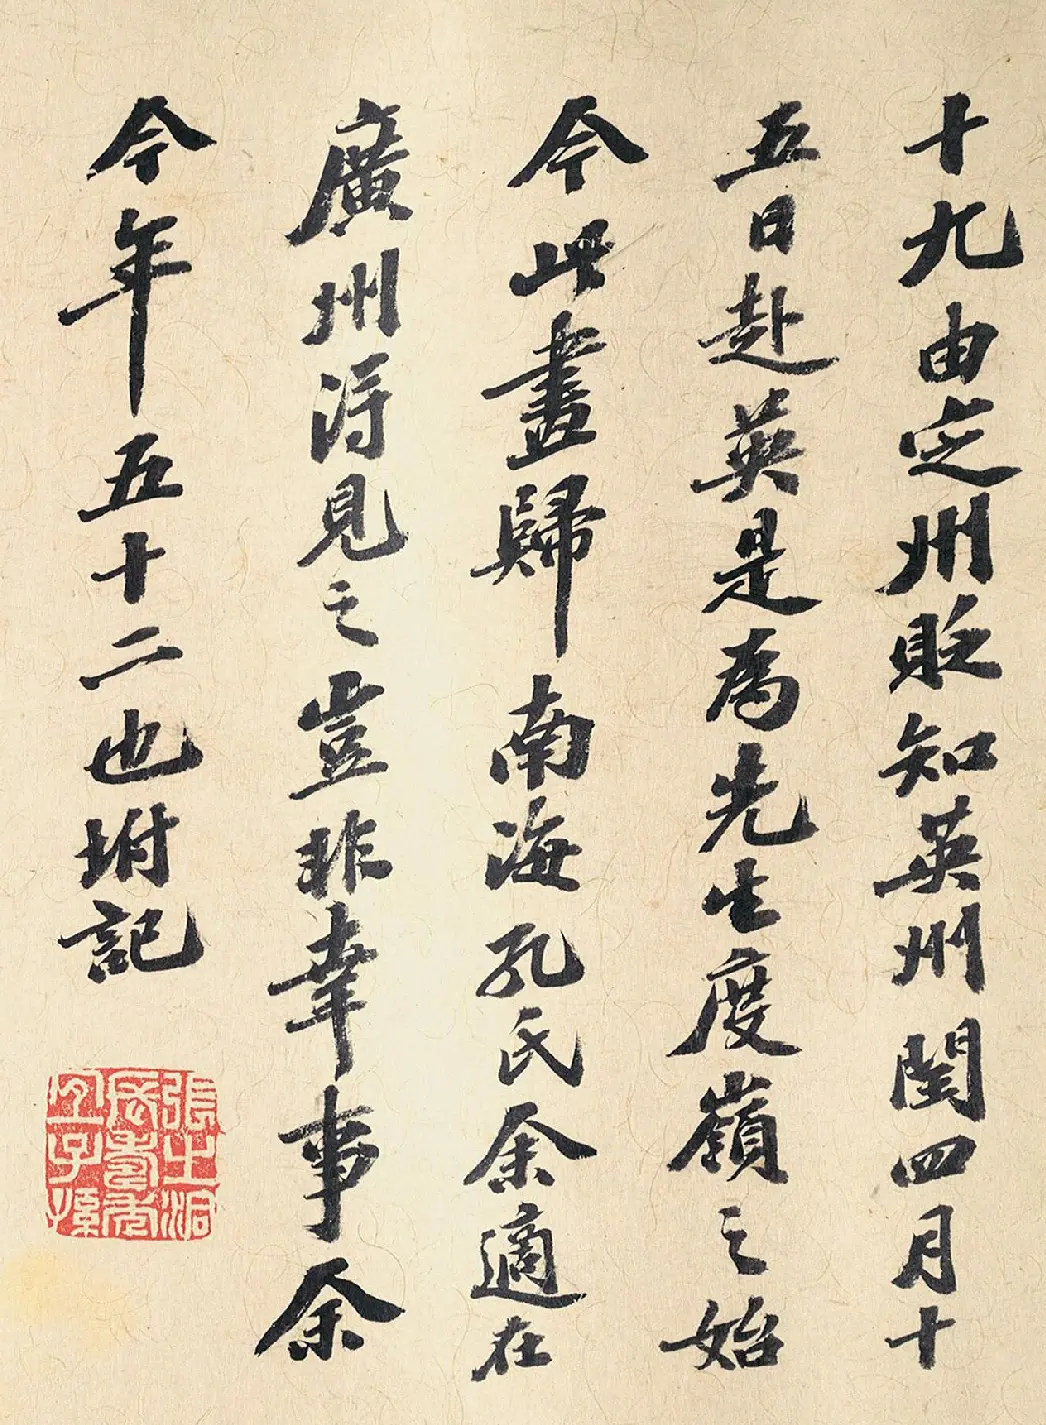 十九由定州貶知英州閏四月十
五日赴英是為先生度嶺之始
今此畫歸南海孔氏余適在
廣州得見之豈非幸事余
今年五十二也坿記
張之洞